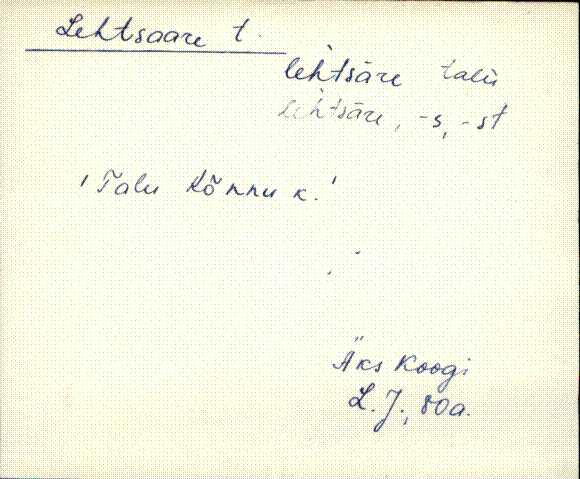 Lehtsaare t.
lèhtsāre talù
lèhtsāre, -s, -st
'Talu Kõnnu k.'
Äks Koogi
L. J., 80a.